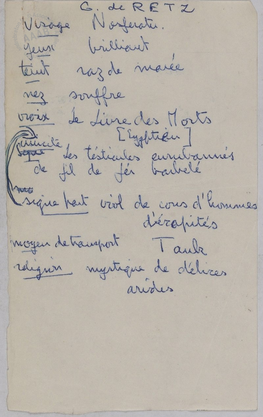 G. de RETZ
Visage Nosferatu.
yeux brillant
teint raz de marée
nez souffre
voix Le Livre des Morts
[Egyptien]
Les testicules enrubannés
de fil de fér barbelé
signe part viol de cous d'hommes
décapités
moyen de transport Tank
religion mystique de délices
arides